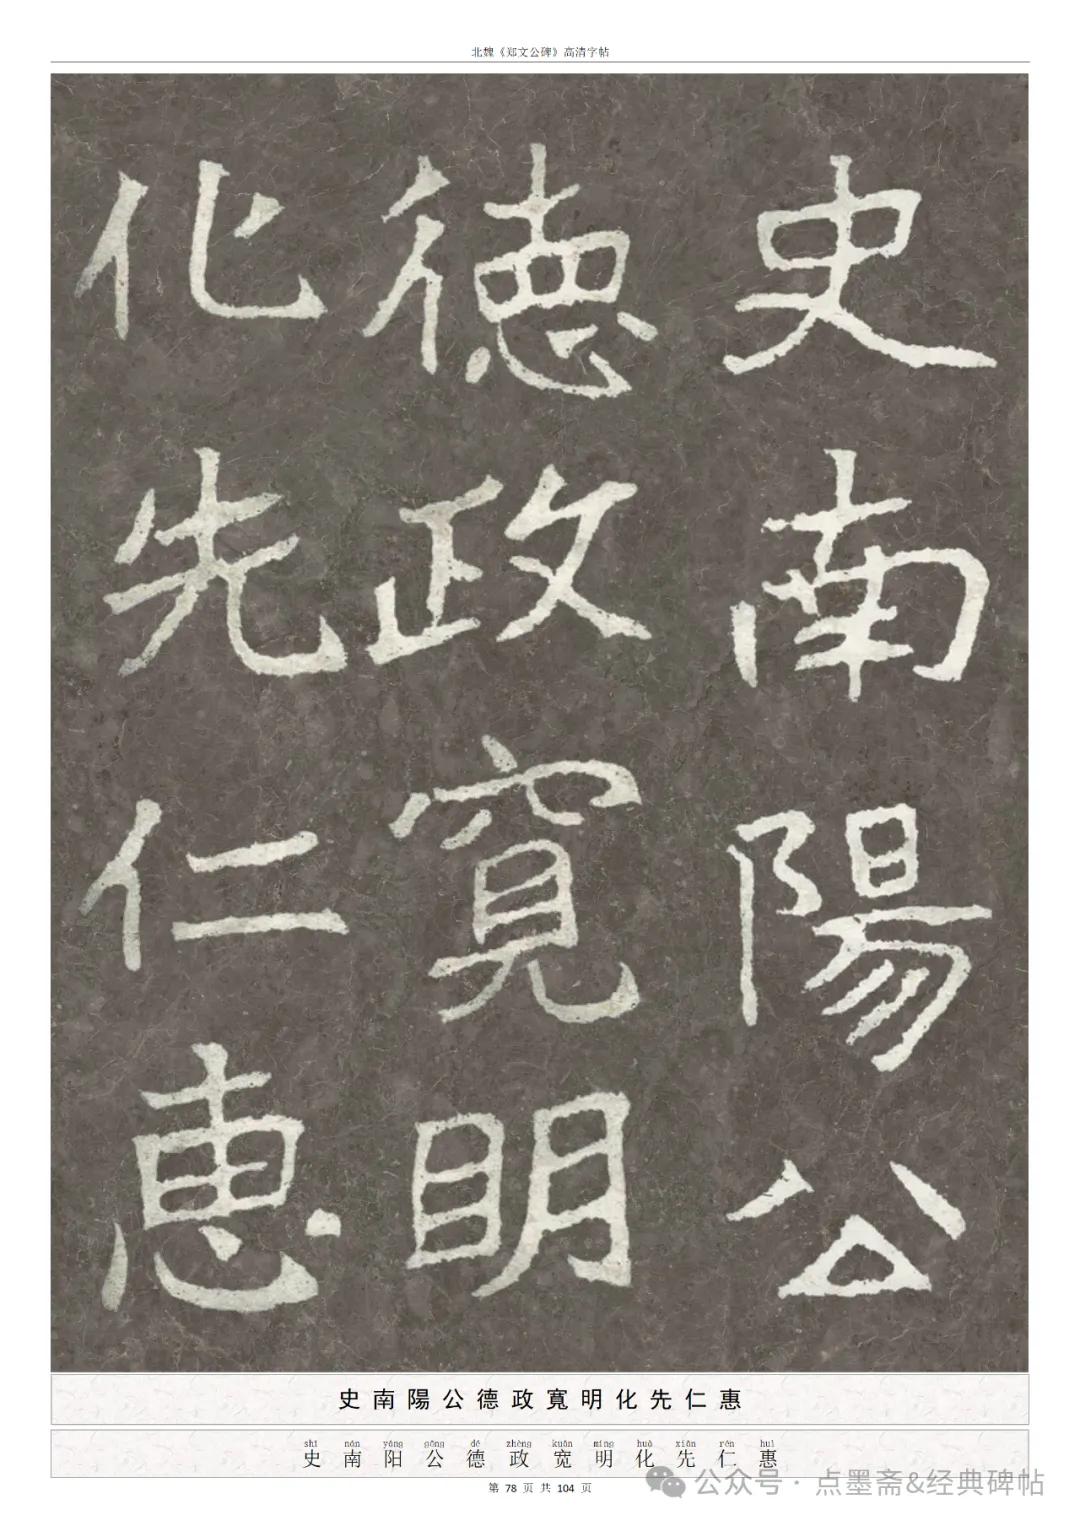 北魏《郑文公碑》高清字帖
史南陽公
德政寬明
化先仁惠
史南陽公德政寬明化先仁惠
shǐ nán yáng gōng dé zhèng kuān míng huà xiān rén huì
史南阳公德政宽明化先仁惠
第 78 页 共 104 页
公众号 · 点墨斋&经典碑帖